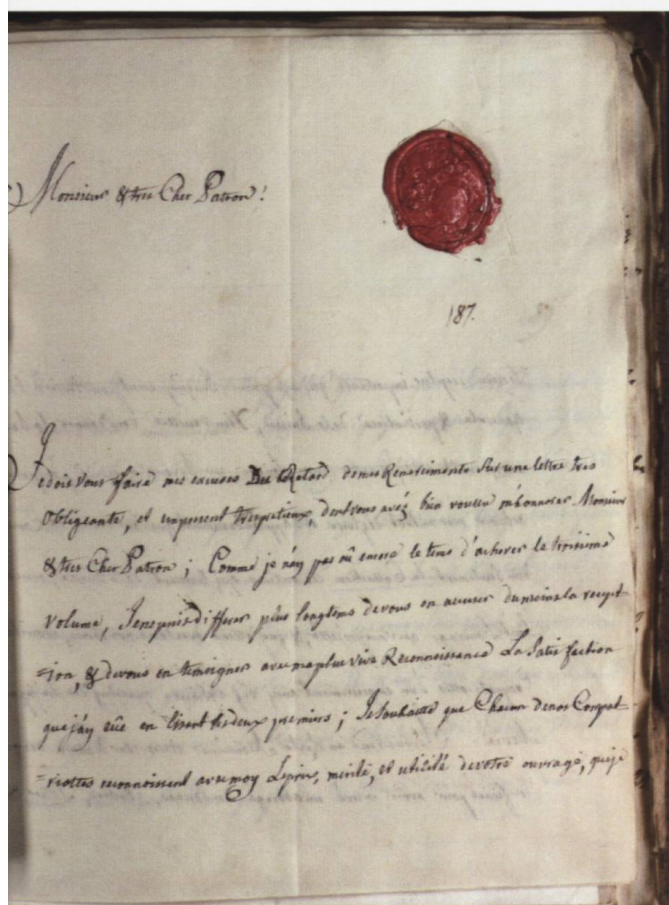 Monsieur & tres Cher Patron!
187.
Je dois Vous faire mes excuses Du Retard de mes Remerciments Sur une lettre tres
Obligeante, et un present tres pretieux, dont vous avéz bien voulu m'honnorer Monsieur
& tres Cher Patron; Comme je n'ay pas eû encore le tems d'achever le troisieme
Volume, Je ne puis differer plus longtems de vous en accuser du moins la recept-
=ion, & de vous en temoigner avec ma plus vive Reconnoissance La Satisfaction
que j'ay eüe en lisant les deux premiers; Je Souhaitte que Chacun de nos Compat-
=riottes reconnoissent avec moy Le prix, merite, et utilité de votre ouvrage, que je